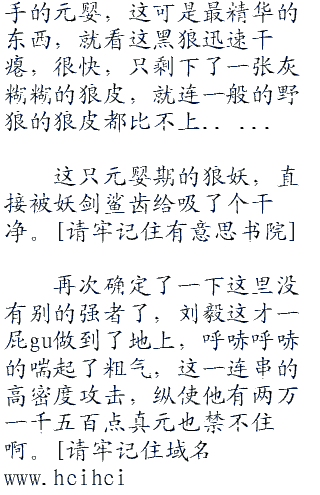 手的元婴，这可是最精华的
东西，就看这黑狼迅速干
瘪，很快，只剩下了一张灰
糊糊的狼皮，就连一般的野
狼的狼皮都比不上．．．．．
这只元婴期的狼妖，直
接被妖剑鲨齿给吸了个干
净。[请牢记住有意思书院]
再次确定了一下这里没
有别的强者了，刘毅这才一
屁gu做到了地上，呼哧呼哧
的喘起了粗气，这一连串的
高密度攻击，纵使他有两万
一千五百点真元也禁不住
啊。[请牢记住域名
www.hcihci